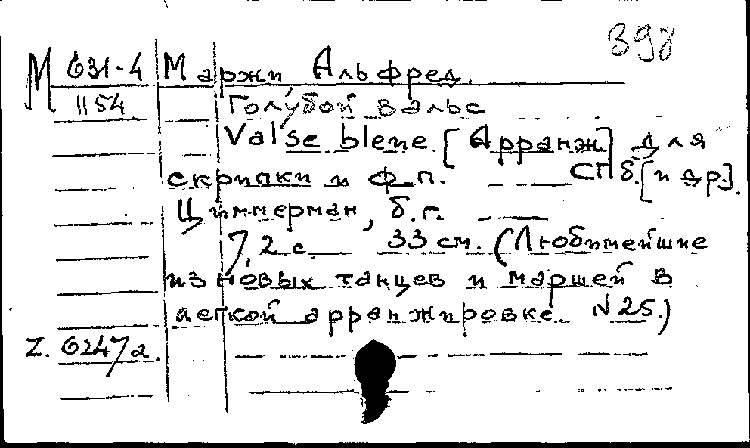 398
М 631-4 Маржи, Альфред.
1154 Голубой вальс
Valse bleue [Арранж] для
скрипки и ф-п. СПб. [и др].
Циммерман, б.г.
7, 2 с. 33 см. (Любимейшие
из новых танцев и маршей в
легкой арранжировке. N 25.)
Z. 6247а.